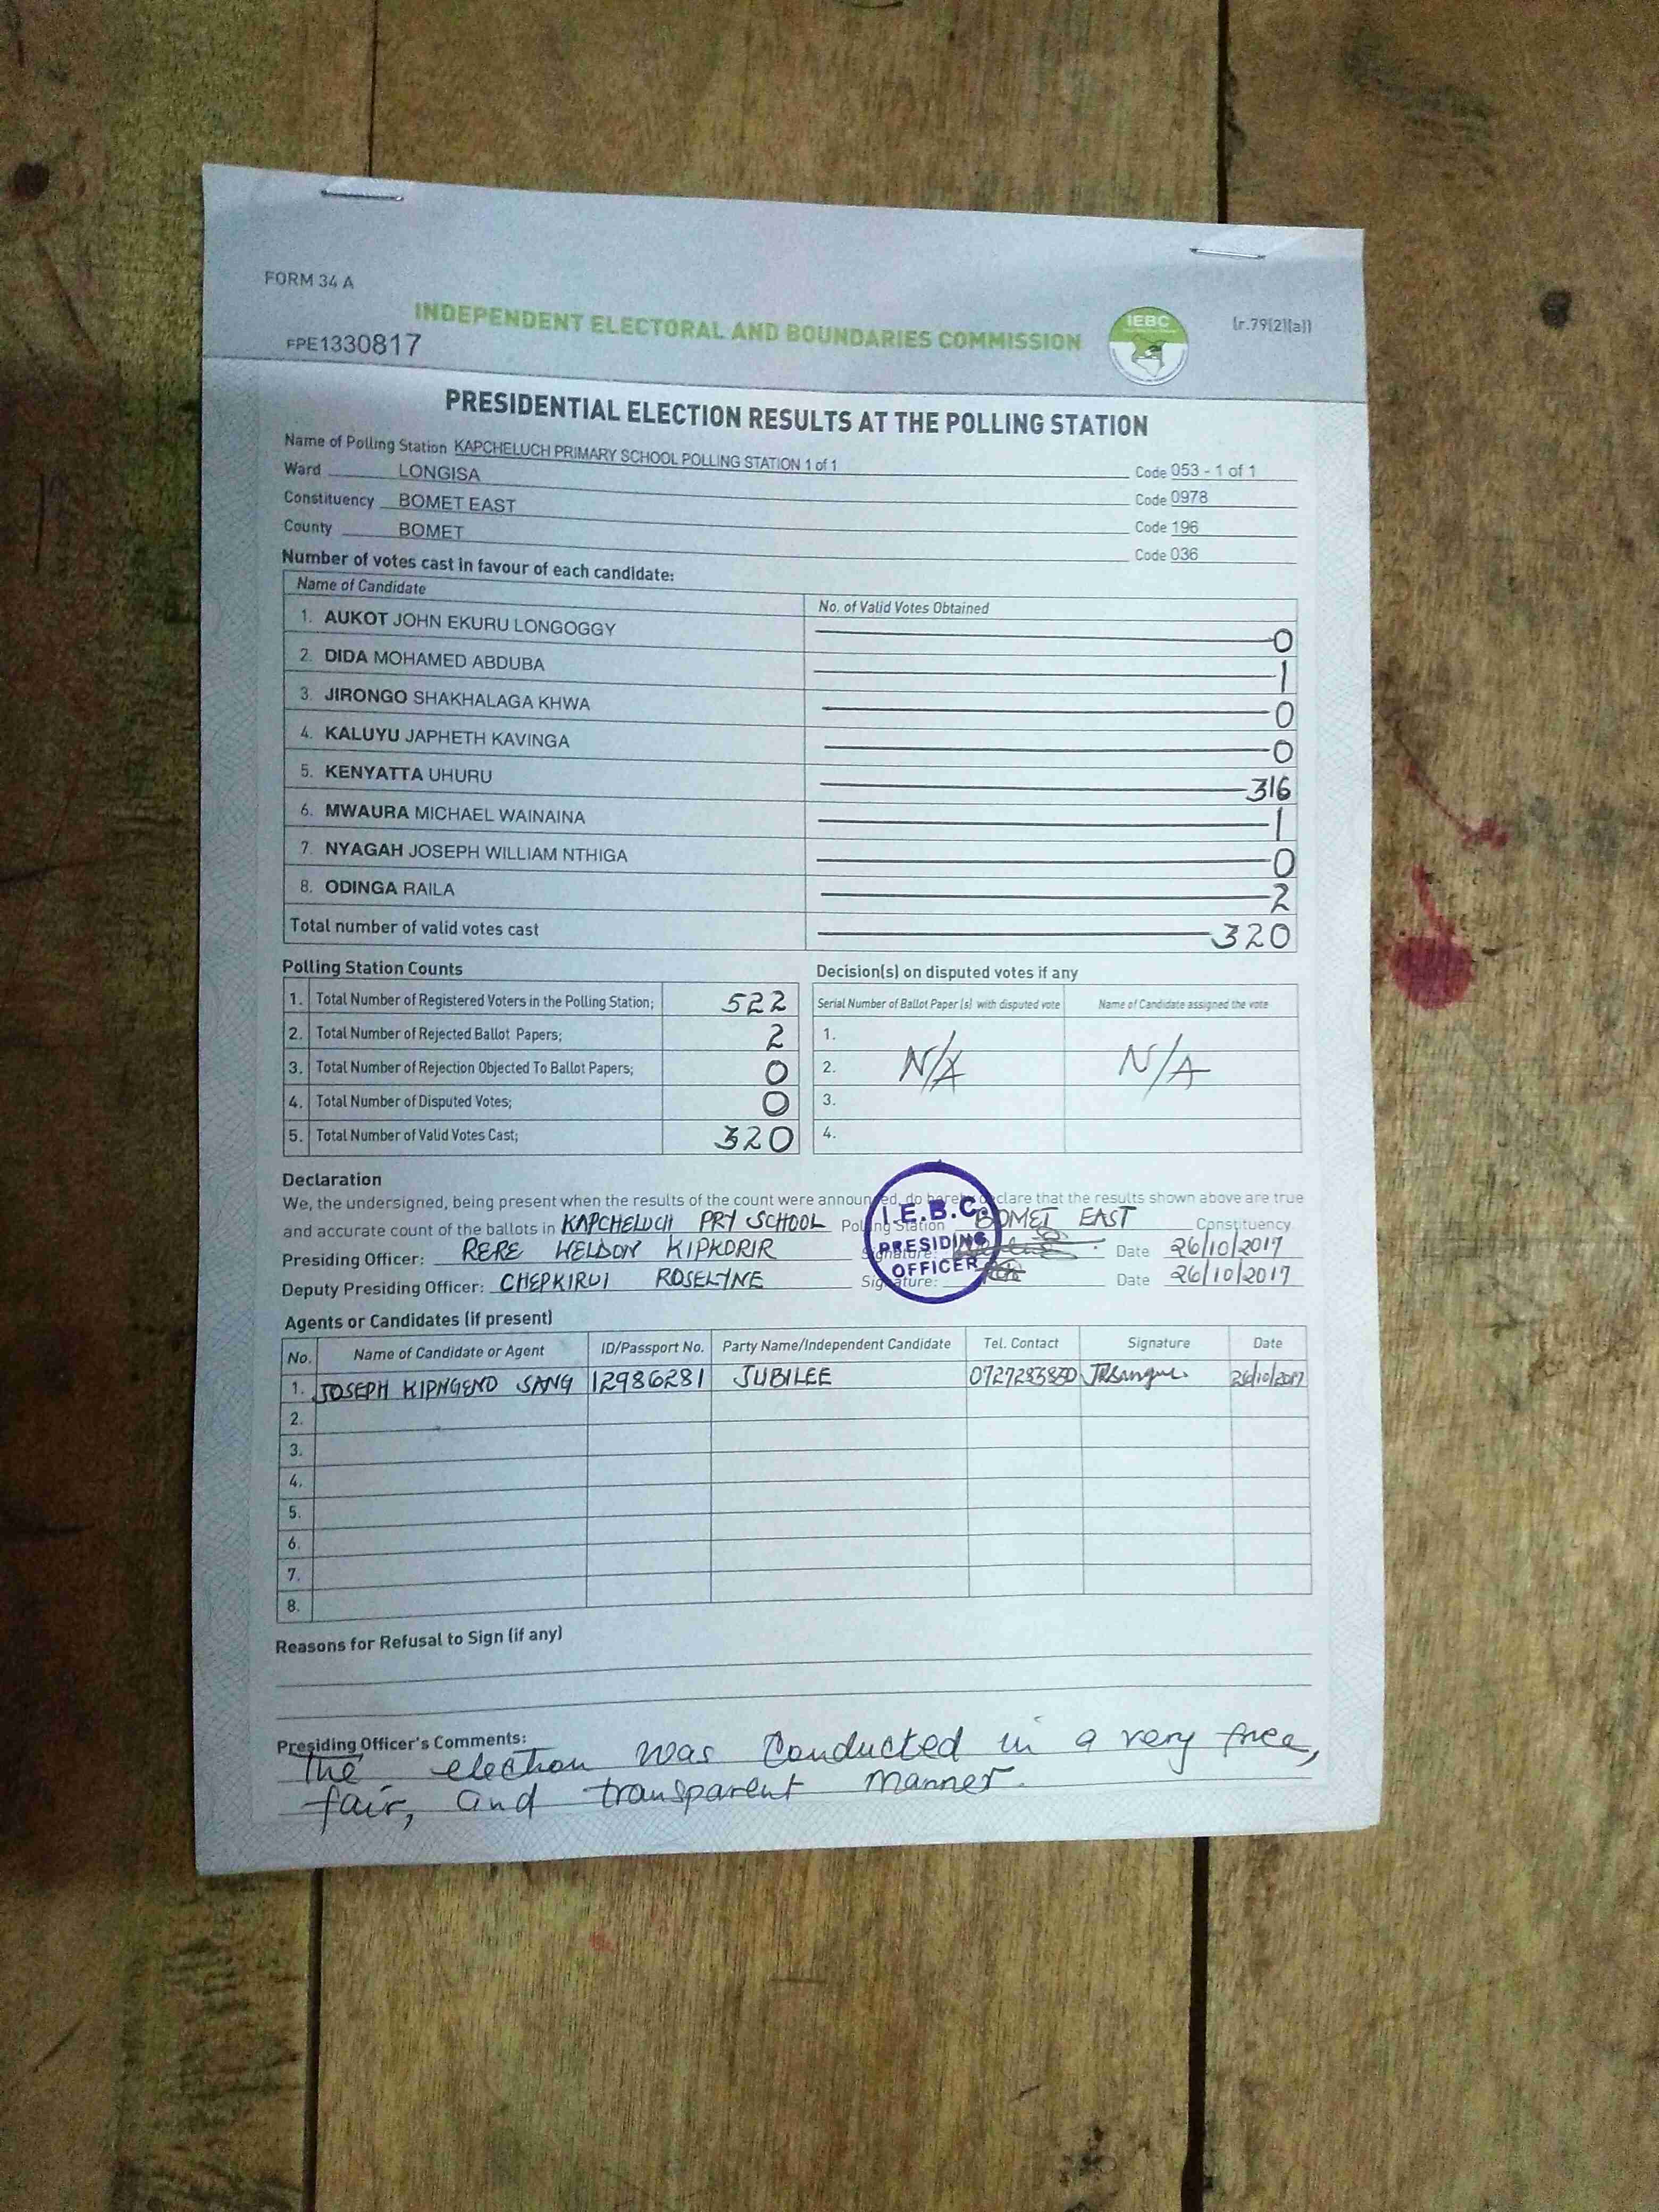 FORM 34 A
INDEPENDENT ELECTORAL AND BOUNDARIES COMMISSION
IEBC
(r.79(2)(a))
FPE1330817
PRESIDENTIAL ELECTION RESULTS AT THE POLLING STATION
Name of Polling Station KAPCHELUCH PRIMARY SCHOOL POLLING STATION 1 of 1 Code 053 - 1 of 1
Ward LONGISA Code 0978
Constituency BOMET EAST Code 196
County BOMET Code 036
Number of votes cast in favour of each candidate:
Name of Candidate No. of Valid Votes Obtained
1. AUKOT JOHN EKURU LONGOGGY 0
2. DIDA MOHAMED ABDUBA 1
3. JIRONGO SHAKHALAGA KHWA 0
4. KALUYU JAPHETH KAVINGA 0
5. KENYATTA UHURU 316
6. MWAURA MICHAEL WAINAINA 1
7. NYAGAH JOSEPH WILLIAM NTHIGA 0
8. ODINGA RAILA 2
Total number of valid votes cast 320
Polling Station Counts
1. Total Number of Registered Voters in the Polling Station; 522
2. Total Number of Rejected Ballot Papers; 2
3. Total Number of Rejection Objected To Ballot Papers; 0
4. Total Number of Disputed Votes; 0
5. Total Number of Valid Votes Cast; 320
Decision(s) on disputed votes if any
Serial Number of Ballot Paper (s) with disputed vote Name of Candidate assigned the vote
1.
2. N/A N/A
3.
4.
Declaration
We, the undersigned, being present when the results of the count were announced, do hereby declare that the results shown above are true
and accurate count of the ballots in KAPCHELUCH PRY SCHOOL Polling Station BOMET EAST Constituency
Presiding Officer: RERE WELDON KIPKORIR Signature: Date 26/10/2017
Deputy Presiding Officer: CHEPKIRUI ROSELYNE Signature: Date 26/10/2017
I.E.B.C.
PRESIDING
OFFICER
Agents or Candidates (if present)
No. Name of Candidate or Agent ID/Passport No. Party Name/Independent Candidate Tel. Contact Signature Date
1. JOSEPH KIPNGENO SANG 12986281 JUBILEE 26/10/2017
2.
3.
4.
5.
6.
7.
8.
Reasons for Refusal to Sign (if any)
Presiding Officer's Comments:
The election was conducted in a very free,
fair, and transparent manner.